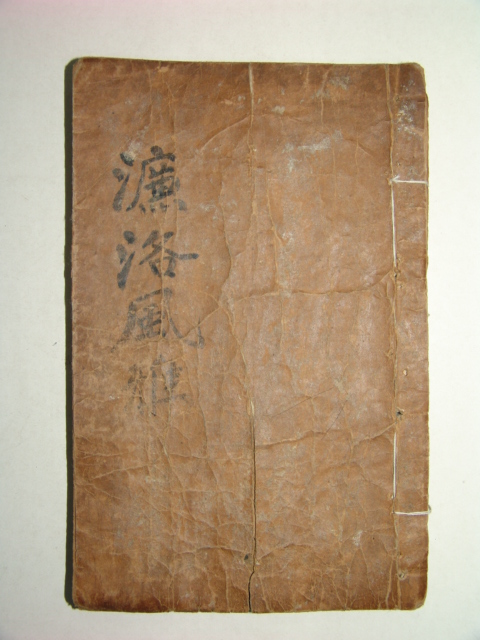 濂洛風雅